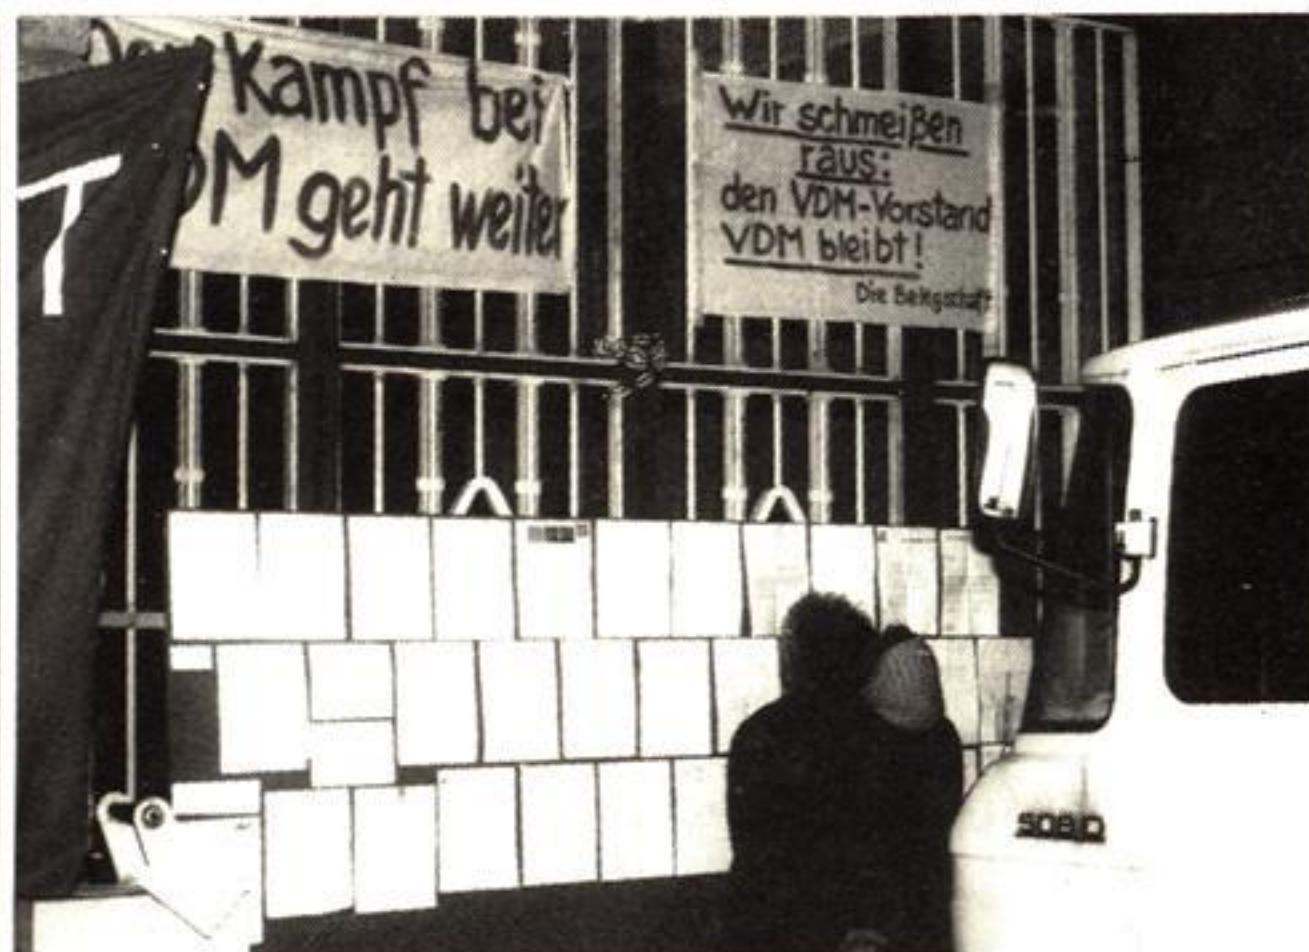 Kampf bei
DM geht weiter
Wir schmeißen
raus:
den VDM-Vorstand
VDM bleibt!
Die Belegschaft
T
508 D